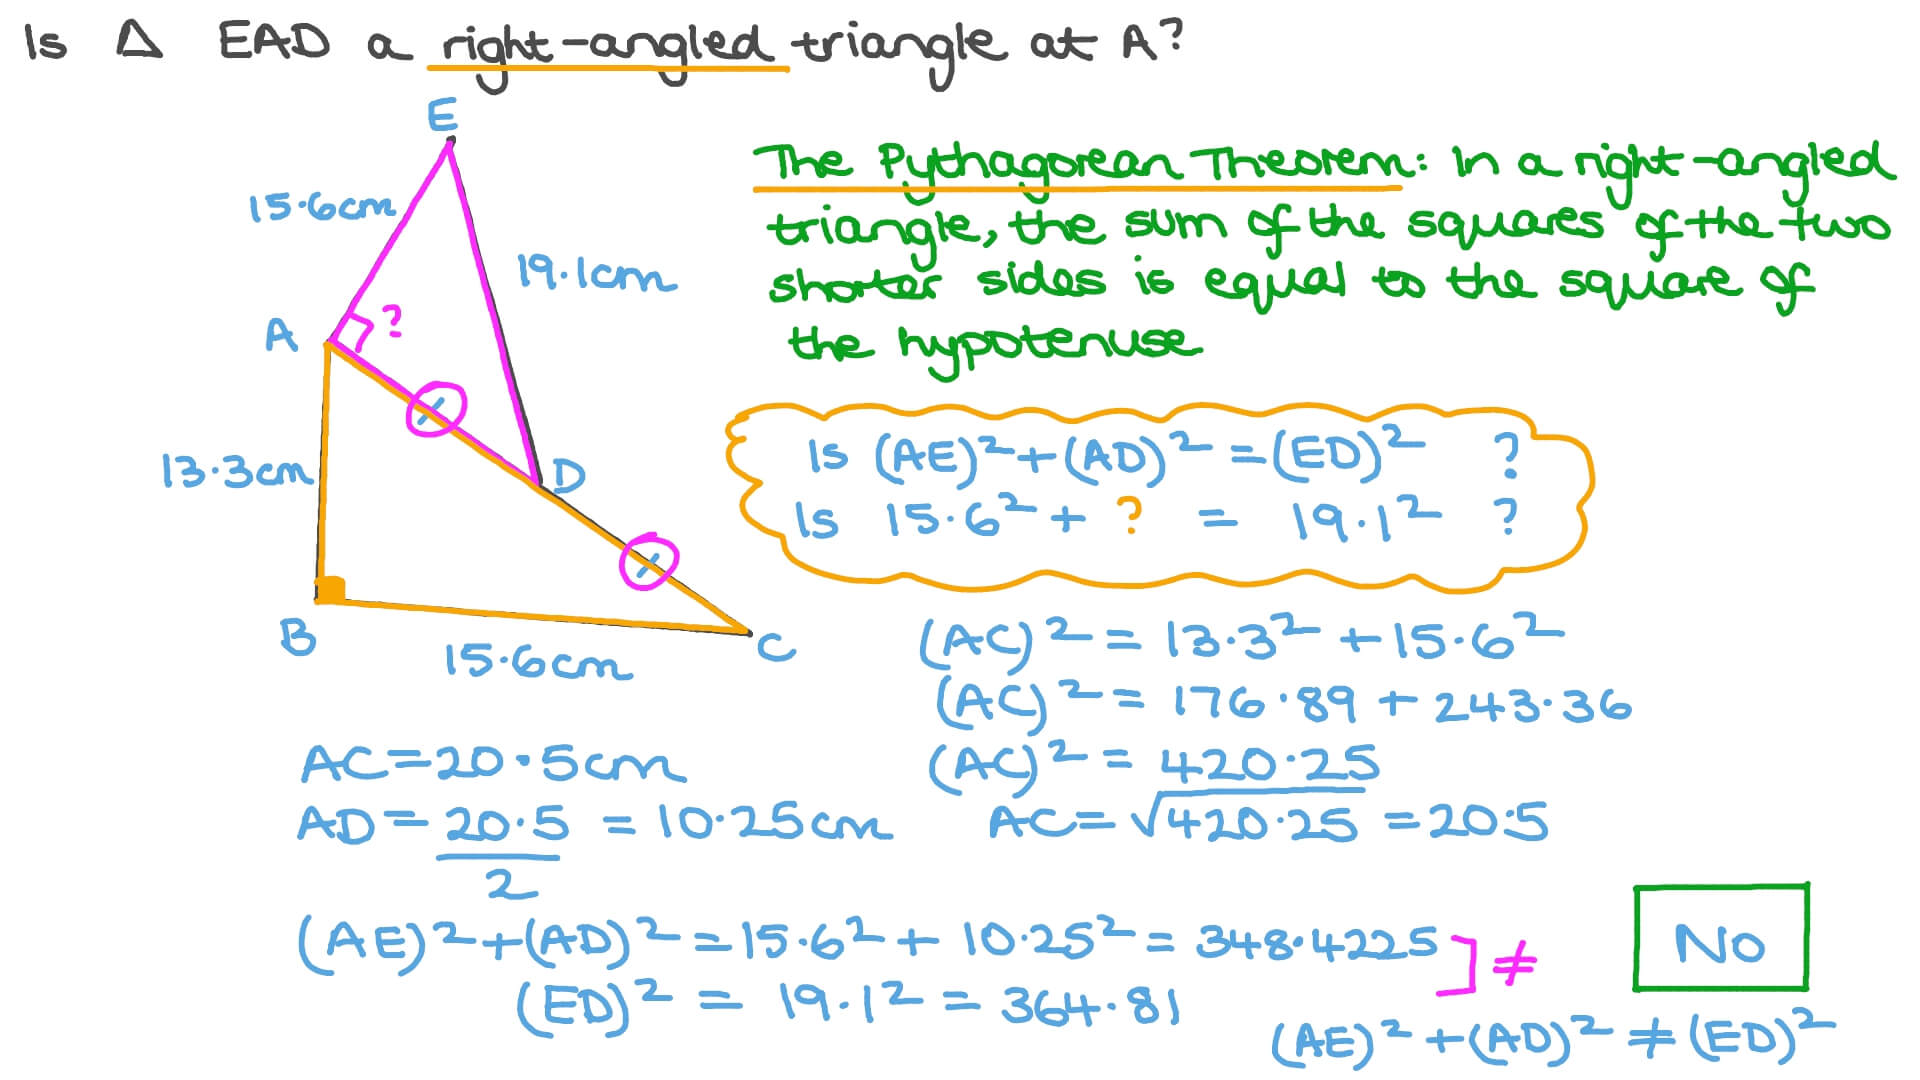 Is Δ EAD a right-angled triangle at A?
E
15.6cm
19.1cm
A
?
13.3cm
D
B
15.6cm
C
The Pythagorean Theorem: In a right-angled
triangle, the sum of the squares of the two
shorter sides is equal to the square of
the hypotenuse
Is (AE)² + (AD)² = (ED)² ?
Is 15.6² + ? = 19.1² ?
(AC)² = 13.3² + 15.6²
(AC)² = 176.89 + 243.36
(AC)² = 420.25
AC = √420.25 = 20.5
AC = 20.5cm
AD = 20.5/2 = 10.25cm
(AE)² + (AD)² = 15.6² + 10.25² = 348.4225
(ED)² = 19.1² = 364.81
] ≠
No
(AE)² + (AD)² ≠ (ED)²